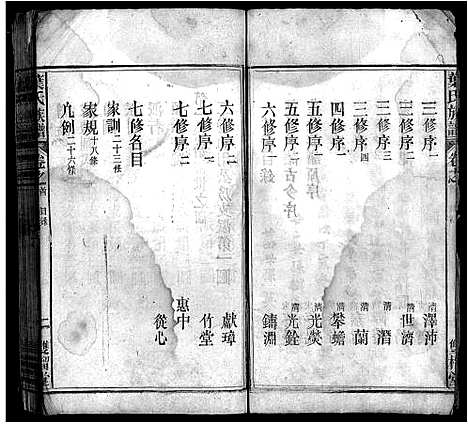 葉氏族譜
三修序一 清澤沛
三修序二 清世濟
三修序三 清潛
三修序四 清蘭
四修序一 清攀蟾
五修序一 清光熒
五修序二 清光銓
六修序一 鑄淵
六修序二 獻璋
七修序一 竹堂
七修序二 惠中
七修名目 從心
家訓二十三條
家規十八條
凡例二十六條
葉氏族譜
卷之首
目錄
二